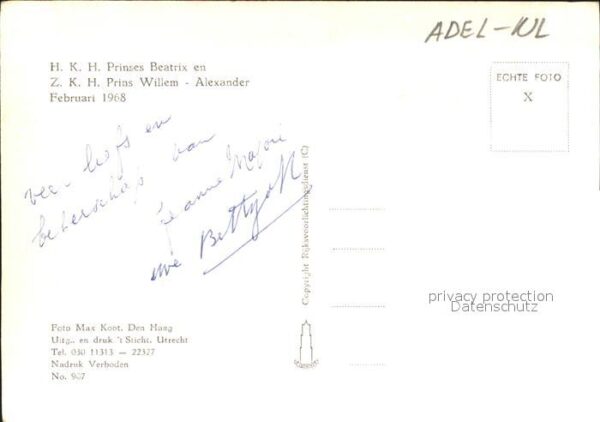 ADEL-NL
H. K. H. Prinses Beatrix en
Z. K. H. Prins Willem - Alexander
Februari 1968
ECHTE FOTO
X
en
beterschap van
Jeanne
Copyright Rijksvoorlichtingsdienst (C)
privacy protection
Veterama
Foto Max Koot, Den Haag
Uitg. en druk 't Sticht, Utrecht
Tel. 030 11313 — 22327
Nadruk Verboden
No. 907